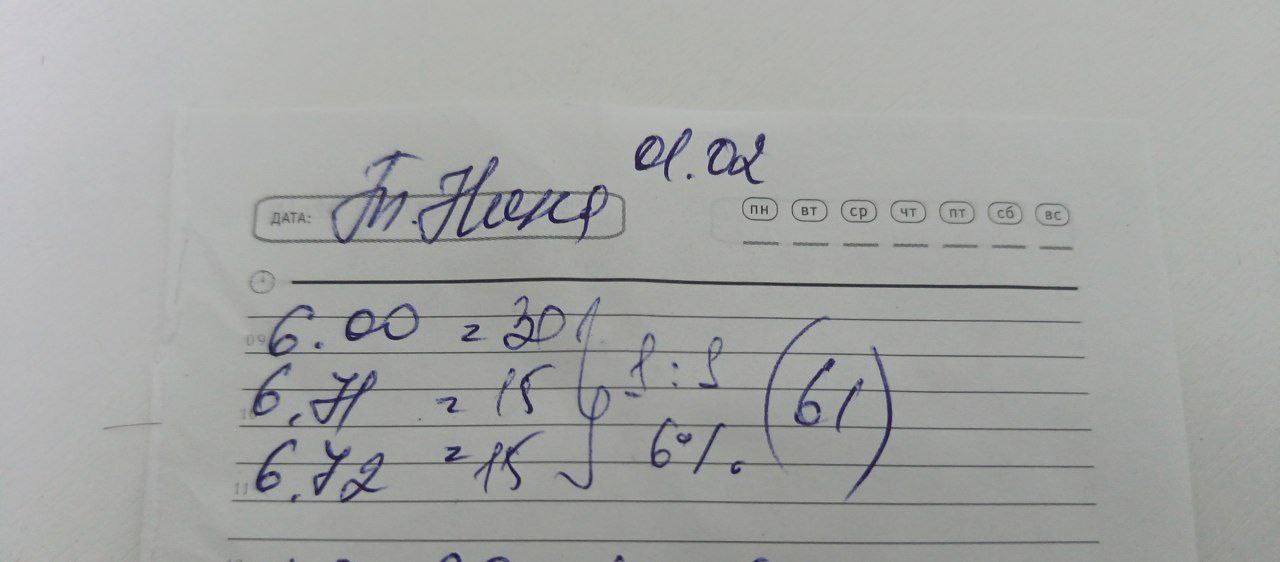 01.02
ДАТА: Тп. Нина
пн вт ср чт пт сб вс
09 6.00 = 30
6.71 = 15 1:1 (61)
6.72 = 15 6%.
11